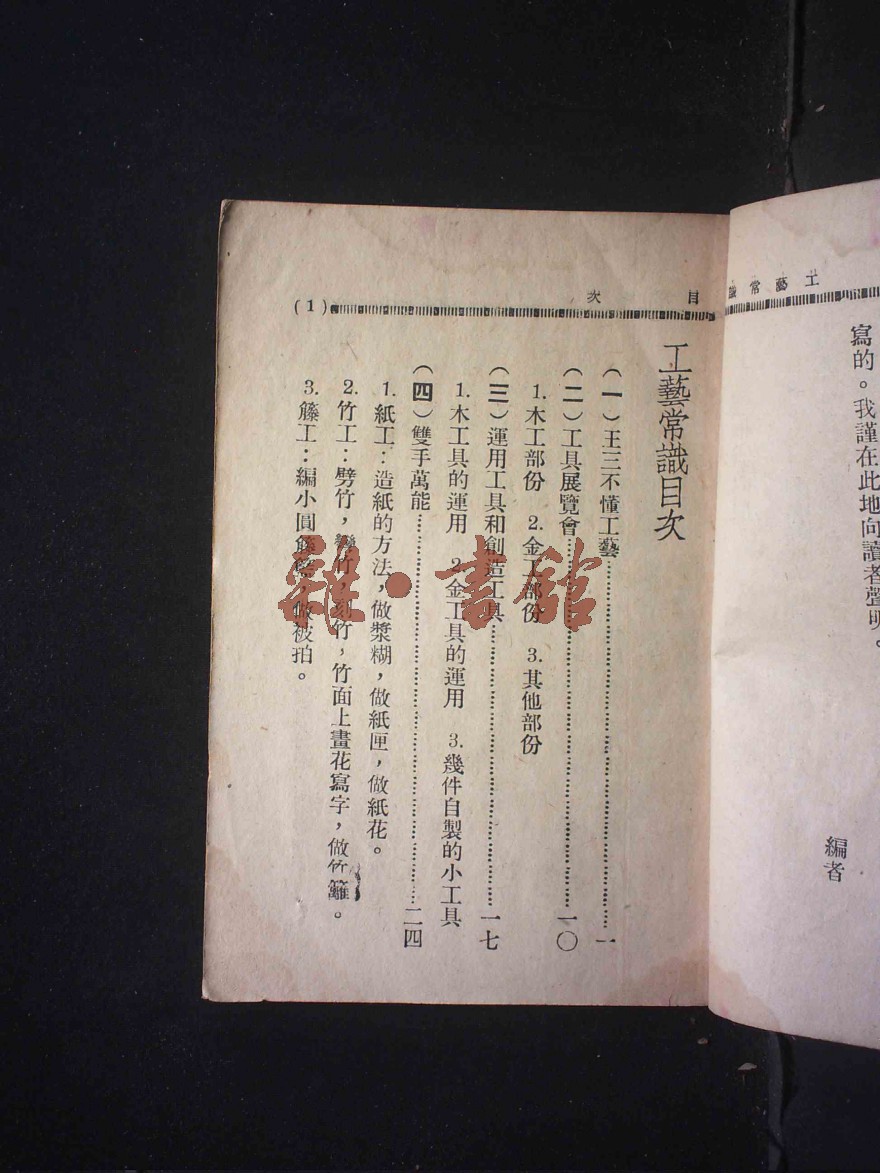 工藝常識
寫的。我謹在此地向讀者聲明。
編者
目次
(1)
工藝常識目次
(一)王三不懂工藝……一
(二)工具展覽會……一〇
1.木工部份 2.金工部份 3.其他部份
(三)運用工具和創造工具……一七
1.木工具的運用 2.金工具的運用 3.幾件自製的小工具
(四)雙手萬能……二四
1.紙工:造紙的方法,做漿糊,做紙匣,做紙花。
2.竹工:劈竹,彎竹,刻竹,竹面上畫花寫字,做竹籬。
3.籐工:編小圓籐籃,做被拍。
雜·書館